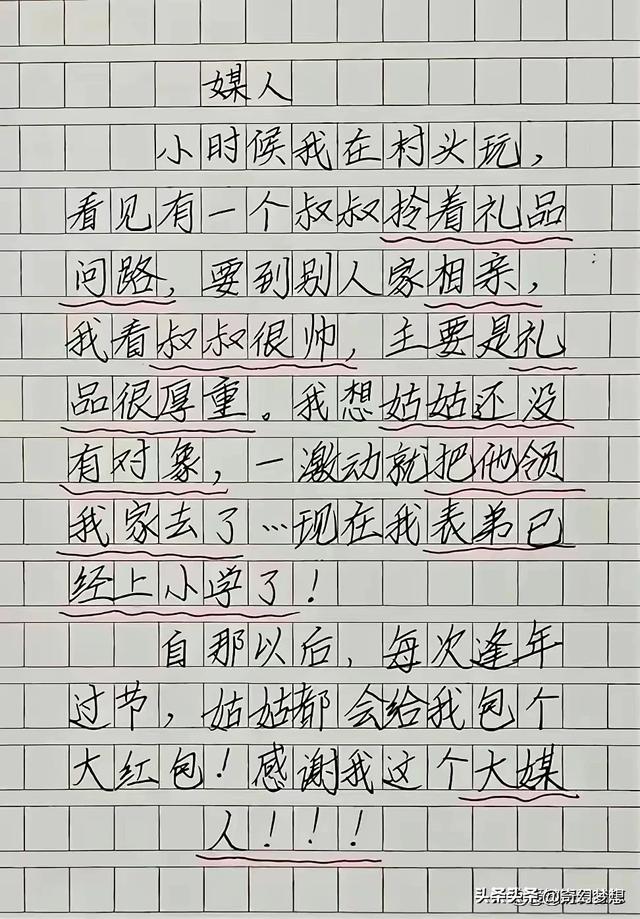 媒人
小时候我在村头玩，
看见有一个叔叔拎着礼品
问路，要到别人家相亲，
我看叔叔很帅，主要是礼
品很厚重。我想姑姑还没
有对象，一激动就把他领
我家去了…现在我表弟已
经上小学了！
自那以后，每次逢年
过节，姑姑都会给我包个
大红包！感谢我这个大媒
人！！！
头条@奇幻梦想